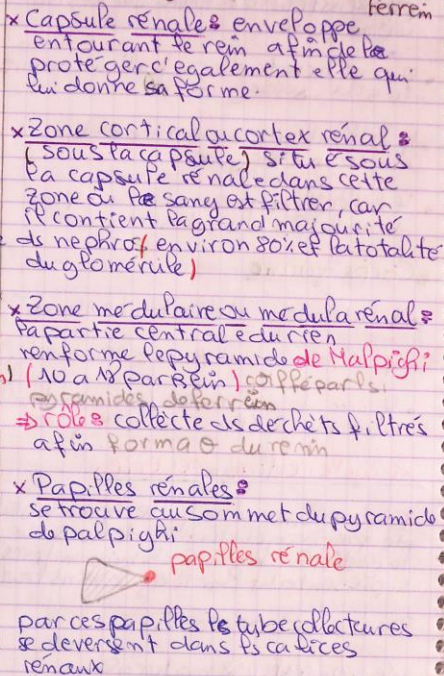 Ferrein
× Capsule rénale : enveloppe
entourant le rein afin de le
proteger c'egalement elle qui
lui donne sa forme.
× Zone cortical ou cortex rénal :
(sous la capsule) situé sous
la capsule rénale dans cette
zone où le sang est filtrer, car
il contient la grand majourité
ds nephros (environ 80% et la totalité
du glomérule)
× Zone médulaire ou medula rénal :
la partie central e du rien
renforme le pyramide de Malpighi
(10 a 18 par Rein) coiffé par ls
pyramides de ferrein
⇒ rôle : collecte ds dechets filtrés
afin du renin
× Papilles rénales :
se trouve au sommet du pyramide
de palpighi
papilles rénale
par ces papilles ls tube collectures
se deversent dans ls calices
rénaux